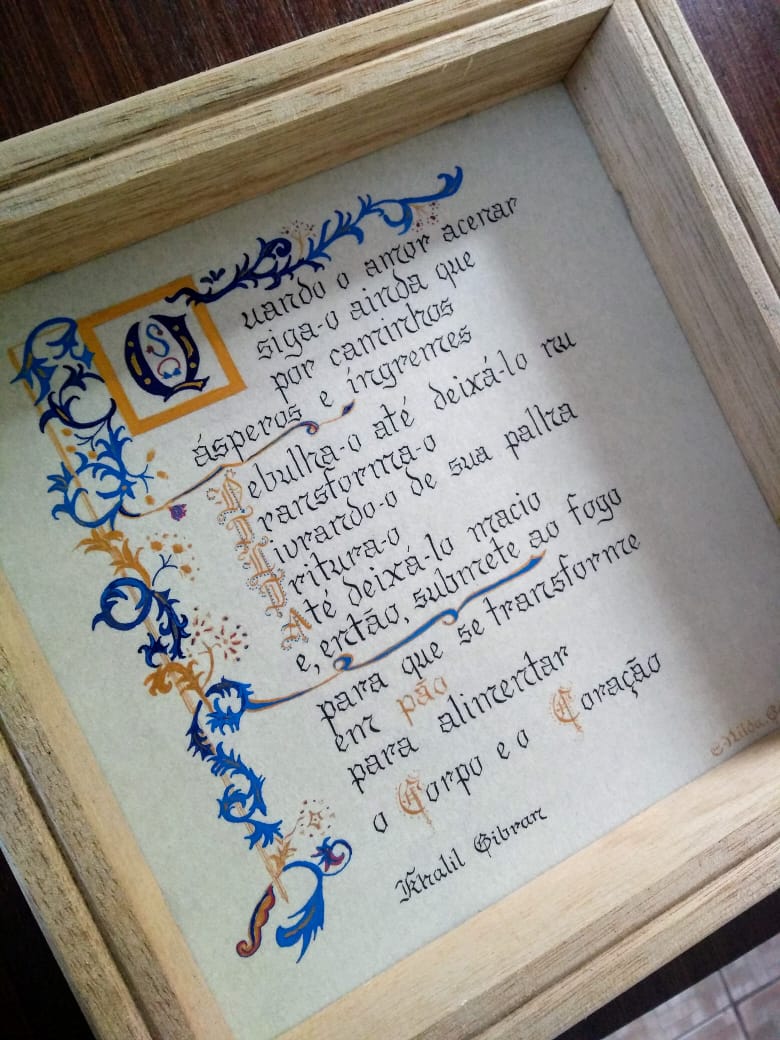 Quando o amor acenar
siga-o ainda que
por caminhos
ásperos e íngremes
Debulha-o até deixá-lo nu
Transforma-o
Livrando-o de sua palha
Tritura-o
Até deixá-lo macio
e, então, submete ao fogo
para que se transforme
em pão
para alimentar
o Corpo e o Coração
Khalil Gibran
Nilda